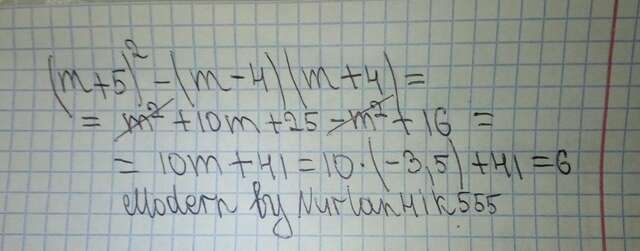 (m+5)² - (m-4)(m+4) =
= m² + 10m + 25 - m² + 16 =
= 10m + 41 = 10·(-3,5) + 41 = 6
Modern by NurlanHik555